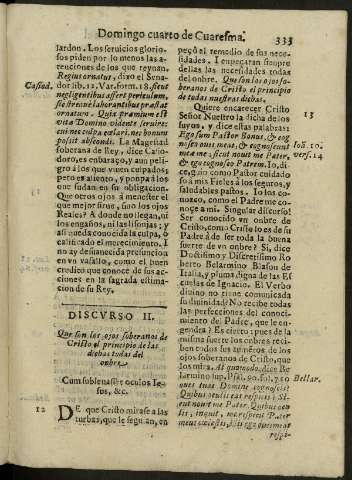 Domingo cuarto de Cuaresma.
333
lardon. Los servicios glorio-
sos piden por lo menos las a-
tenciones de los que reynan.
Regius ornatus, dixo el Sena-
Casiod.
dor lib. 12. Var. form. 18. sicut
negligentibus affert periculum,
sic strenuè laborantibus præstat
ornatum. Quia præmium est
vita Domino vidente servire:
cui nec culpa celari, nec bonum
possit abscondi. La Magestad
soberana de Rey, dice Casio-
doro, es embarazo, y aun peli-
gro à los que viven culpados;
pero es aliento, y ponpa à los
que sudan en su obligacion.
Que otros ojos à menester el
que mejor sirve, sino los ojos
Reales? A donde no llegan, ni
los engaños, ni las lisonjas; y
asi queda conocida la culpa, ò
calificado el merecimiento. I
no ay desaliñecida presuncion
en vn vasallo, como el buen
credito que conoce de sus ac-
ciones en la sagrada estima-
cion de su Rey.
DISCVRSO II.
Que son los ojos soberanos de
Cristo el principio de las
dichas todas del
onbre.
Cum sublevasset oculos Ie-
sus, &c.
12
DE que Cristo mirase a las
turbas, que le seguian, en
peçò el remedio de sus nece-
sidades. I enpeçaran sienpre
dellas las necesidades todas
del onbre. Que son los ojos so-
beranos de Cristo el principio
de todas nuestras dichas.
13
Quiere encarecer Cristo
Señor Nuestro la dicha de los
suyos, y dice estas palabras:
Ego sum Pastor Bonus, & cog-
nosco oves meas, & cognoscunt
Ioã. 10.
me meæ, sicut novit me Pater,
vers. 14
& ego cognosco Patrem. Io, di-
ce, guio como Pastor cuidado
so à mis Fieles à los seguros, y
saludables pastos. Io los co-
nozco, como el Padre me co-
noce a mi. Singular discurso!
Ser conocido vn onbre de
Cristo, como Cristo lo es de su
Padre à de ser toda la buena
suerte de vn onbre? Si, dice
Doctisimo y Discretisimo Ro
berto Belarmino Blason de
Italia, y pluma digna de las Es
cuelas de Ignacio. El Verbo
divino no tiene comunicada
su divinidad? No recibe todas
las perfecciones del conoci-
miento del Padre, que le en-
gendra? Es cierto; pues de la
misma suerte los onbres reci-
ben todos los aumentos de los
ojos soberanos de Cristo, que
los mira. At quomodo, dice Be
larmino sup. Psal. 90. fol. 750
Bellar.
oves tuas Domine cognoscis?
Quibus oculis eas respicis? Si-
cut novit me Pater. Quibus ocu
lis, inquit, me respicit Pater
meus cœlestis,
respi-